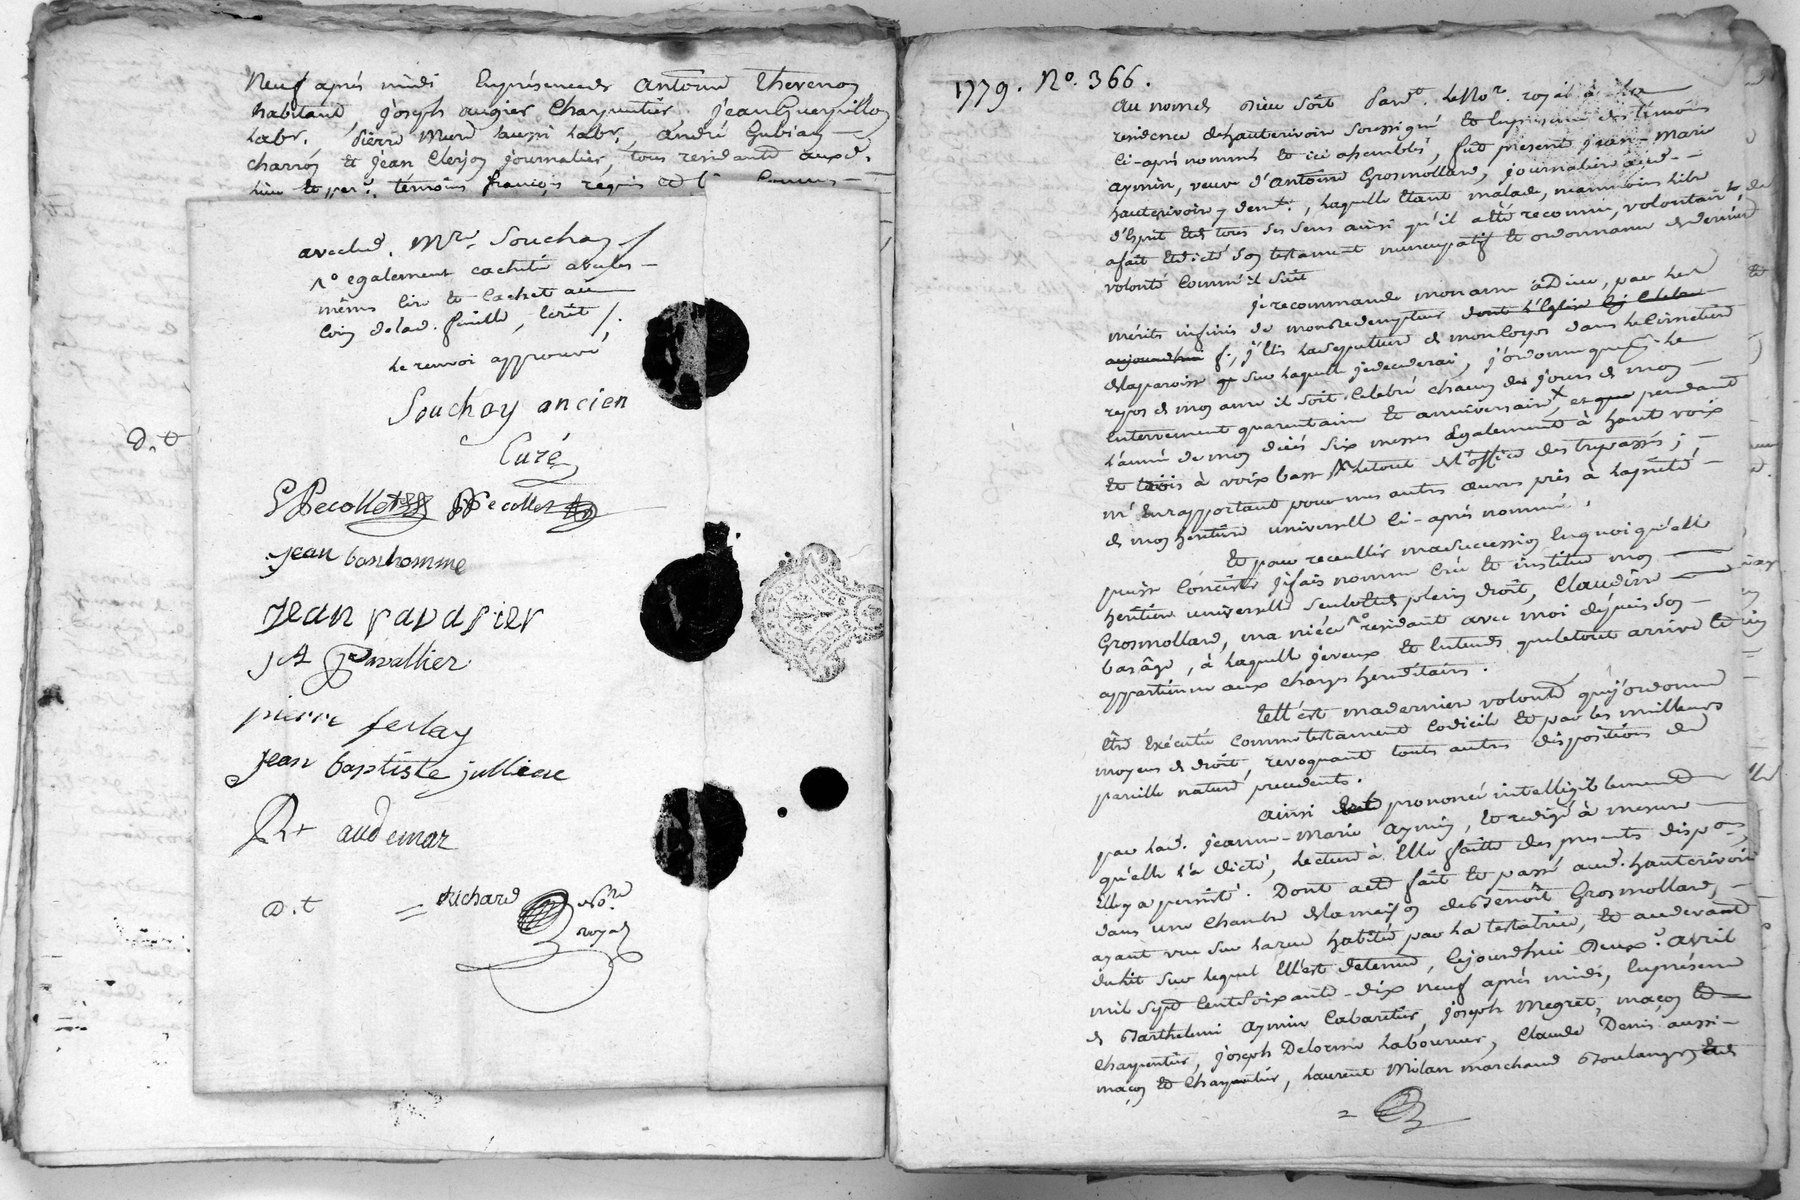 Neuf après midi En présences d'Antoine Thevenon
habitant, joseph augier Charpentier, jean Guerpillon
labr. pierre Mure aussi labr, andré Gubian
charron Et jean Clerjon journalier, tous residants auxd.
lieu Et per. témoins françois requis
avecled. Mre. Souchay
no également cacheté avec les
mêmes lire Et Cachet au
Coin delad. feuille, Ecrit /.
Le renvoi approuvé,
Souchay ancien
Curé
D. t
P Pecollet Pecollet
jean bonhomme
jean ravasier
JA Cuvallier
pierre ferlay
jean baptiste julliene
Rt audemar
D. t = Richard Nore.
royal
1779. No. 366.
Au nom de Dieu soit Pardt. Le Nore. royal à la
residence dehauterivoire soussigné Et En presence des témoins
Ci-après nommés Et ici assemblés, fut presente jean-Marie
aymin, veuve d'Antoine Grosmollard, journalière aud.
hauterivoire y demte., Laquelle Etant malade, neanmoins libre
d'Esprit Et de tous Ses Sens ainsi qu'il a Eté reconnu, volontairt.
a fait Et dicté Son testament nuncupatif Et ordonnance de derniere
volonté Comm'il suit
je recommande mon ame à Dieu, par les
merits infinis de mon redempteur dont l'Eglise Ej Celebre
aujourdhui f., j'Elis la sepulture de mon Corps dans le Cimetiere
delaparoisse sur laquelle jedecederai, j'ordonne que le
repos de mon ame il soit Celebré chacun des jours de mon
Enterrement quarentaine Et anniversaire, et que pendant
l'année de mon décés Six messes Egalement à haut voix
Et trois à voix basse Et le tout de l'office des trepassés;
m'En rapportant pour mes autres œuvres pies à la pieté
de mon heritiere universelle Ci-après nommée.
Et pour recueillir ma Succession En quoi qu'elle
puisse Consister je fais nomme Crée Et institue mon
heritiere universelle seule Et de plein droit, Claudine
Grosmollard, ma niéce residant avec moi depuis son
bas âge, à laquelle je veux Et Entends que le tout arrive Et
appartienne aux charges hereditaires.
telle est ma derniere volonté que j'ordonne
Etre Exécutée Comme testament Codicile Et par les meilleurs
moyens de droit, revoquant toutes autres dispositions de
pareille nature precedentes.
Ainsi prononcé intelligiblement
par lad. jeanne-Marie aymin, Et redigé à mesure
qu'elle l'a dicté, lecture à Elle faitte des presentes dispons,
Elle y a persisté. Dont acte fait Et passé aud. hauterivoire
dans une Chambre de la maison de Benoît Grosmollard,
ayant vue sur la rue habitée par la testatrice, Et au devant
du lit sur lequel Elle est detenue, Cejourdhui Deuxe. avril
mil Sept Cent Soixante-dix neuf après midi, En présence
de Barthelemi aymin Cabaretier, joseph Megret, maçon Et
Charpentier, joseph Delorme laboureur, Claude Denis aussi
maçon Et Charpentier, laurent Milan marchand Boulanger
=